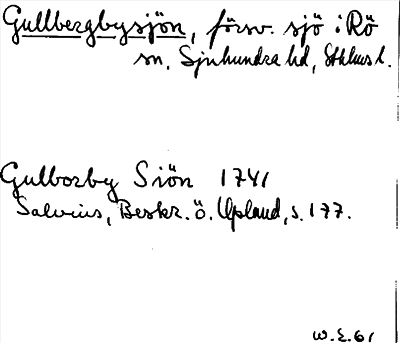 Gullbergbysjön, försv. sjö i Rö
sn, Sjuhundra hd, Sthlms l.
Gulborby Siön 1741
Salvius, Beskr. ö. Upland, s. 177.
W.E.61